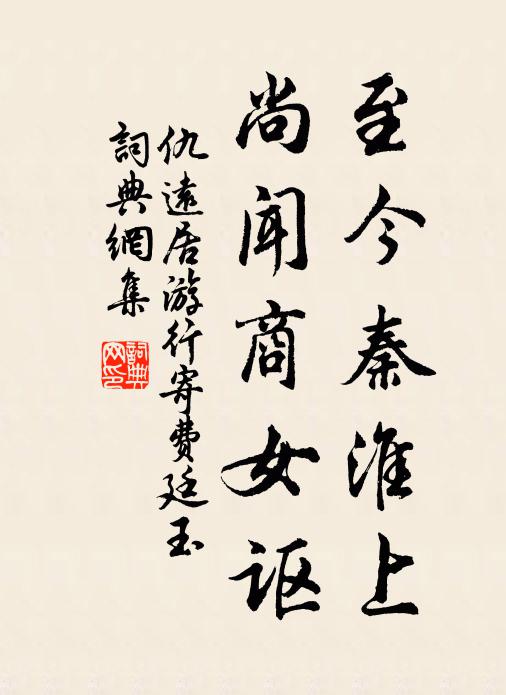 至今秦淮上
尚闻商女讴
仇遠居游行寄費廷玉
詞典網集
詞典網印